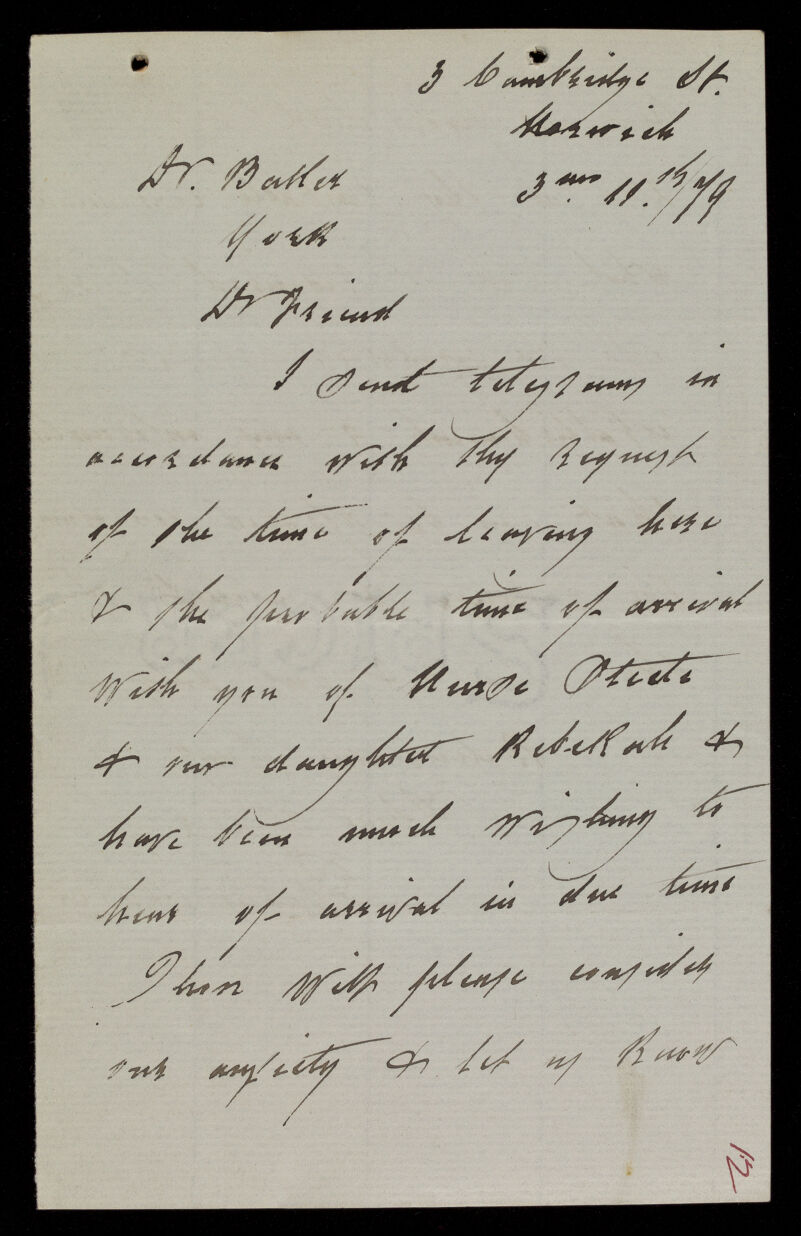 3 Cambridge St.
Norwich
Dr. Baker 3mo. 11.th/79
York
Dr Friend
I sent telegram in
accordance with thy request
of the time of leaving here
& the probable time of arrival
with you of Nurse Steele
& our daughter Rebekah &
have been much wishing to
hear of arrival in due time
Thou wilt please consider
our anxiety & let us know
12